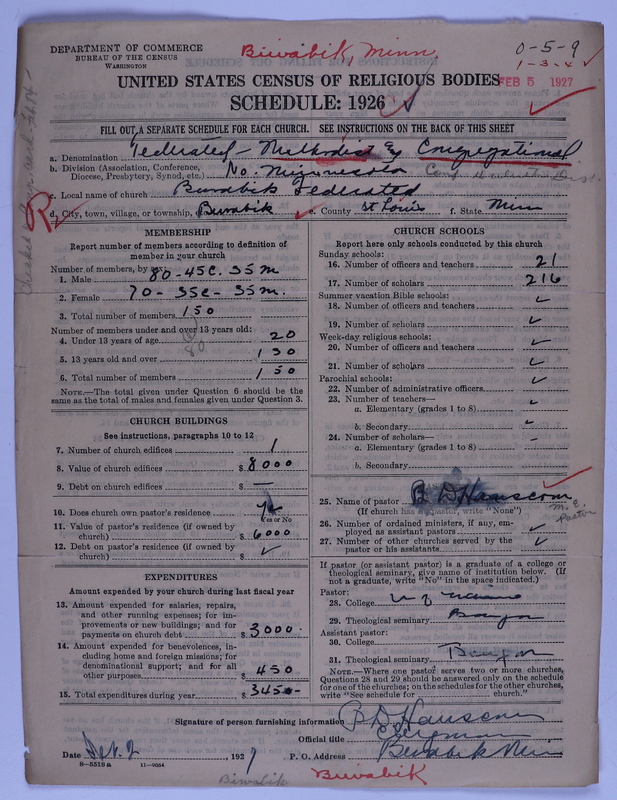 DEPARTMENT OF COMMERCE
BUREAU OF THE CENSUS
WASHINGTON
Biwabik, Minn,
0-5-9
1-3-4
UNITED STATES CENSUS OF RELIGIOUS BODIES
FEB 5 1927
SCHEDULE: 1926
FILL OUT A SEPARATE SCHEDULE FOR EACH CHURCH. SEE INSTRUCTIONS ON THE BACK OF THIS SHEET
a. Denomination Federated - Methodist & Congregational
b. Division (Association, Conference, Diocese, Presbytery, Synod, etc.) No. Minnesota
c. Local name of church Biwabik Federated
d. City, town, village, or township, Biwabik e. County St Louis f. State Minn
MEMBERSHIP
Report number of members according to definition of
member in your church
Number of members, by sex:
1. Male 80-45C. 35M
2. Female 70-35C-35M.
3. Total number of members 150
Number of members under and over 13 years old:
4. Under 13 years of age 20
80
5. 13 years old and over 130
6. Total number of members 150
NOTE.—The total given under Question 6 should be the
same as the total of males and females given under Question 3.
CHURCH BUILDINGS
See instructions, paragraphs 10 to 12
7. Number of church edifices 1
8. Value of church edifices $ 8000
9. Debt on church edifices $ —
10. Does church own pastor's residence yes
Yes or No
11. Value of pastor's residence (if owned by
church) $ 6000
12. Debt on pastor's residence (if owned by
church) $ ✓
EXPENDITURES
Amount expended by your church during last fiscal year
13. Amount expended for salaries, repairs,
and other running expenses; for im-
provements or new buildings; and for
payments on church debt $ 3000
14. Amount expended for benevolences, in-
cluding home and foreign missions; for
denominational support; and for all
other purposes $ 450
15. Total expenditures during year $ 3450
CHURCH SCHOOLS
Report here only schools conducted by this church
Sunday schools:
16. Number of officers and teachers 21
17. Number of scholars 216
Summer vacation Bible schools:
18. Number of officers and teachers ✓
19. Number of scholars ✓
Week-day religious schools:
20. Number of officers and teachers ✓
21. Number of scholars ✓
Parochial schools:
22. Number of administrative officers ✓
23. Number of teachers—
a. Elementary (grades 1 to 8) ✓
b. Secondary ✓
24. Number of scholars—
a. Elementary (grades 1 to 8) —
b. Secondary
25. Name of pastor B D Hanscom
(If church has no pastor, write "None")
M. E. Pastor
26. Number of ordained ministers, if any, em-
ployed as assistant pastors ✓
27. Number of other churches served by the
pastor or his assistants ✓
If pastor (or assistant pastor) is a graduate of a college or
theological seminary, give name of institution below. (If
not a graduate, write "No" in the space indicated.)
Pastor:
28. College U of Maine
29. Theological seminary Bangor
Assistant pastor:
30. College
31. Theological seminary Bangor
NOTE.—Where one pastor serves two or more churches,
Questions 28 and 29 should be answered only on the schedule
for one of the churches; on the schedules for the other churches,
write "See schedule for church."
Signature of person furnishing information B D Hanscom
Official title Clergyman
Date 1927 P. O. Address Biwabik Minn
8—5519a 11—9054
Biwabik
Biwabik